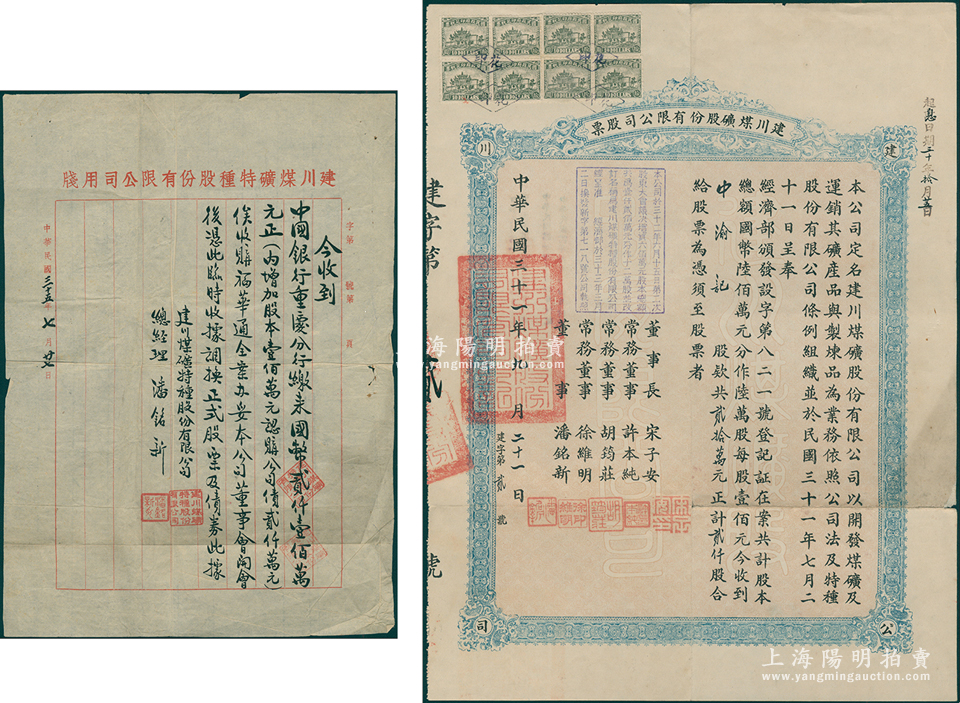 建川煤礦特種股份有限公司用牋
字第 號第 頁
今收到
中國銀行重慶分行繳來國幣貳仟壹佰萬
元正（內增加股本壹佰萬元認購公司債貳仟萬元）
俟收購福華通全業办妥本公司董事會開會
後憑此臨時收據調換正式股票及債券此據
建川煤礦特種股份有限公司
總經理 潘銘新
中華民國三五年七月廿七日
建川煤礦股份有限公司股票
建
川
公
司
本公司定名建川煤礦股份有限公司以開發煤礦及
運銷其礦產品與製煉品為業務依照公司法及特種
股份有限公司條例組織並於民國三十一年七月二
十一日呈奉
經濟部頒發設字第八二一號登記証在案共計股本
總額國幣陸佰萬元分作陸萬股每股壹佰元今收到
中渝記 股欵共貳拾萬元正計貳仟股合
給股票為憑須至股票者
董事長 宋子安
常務董事 許本純
常務董事 胡筠莊
常務董事 徐維明
董事 潘銘新
中華民國三十一年九月二十一日
建字第貳號
建字第
貳
號
上海陽明拍賣
www.yangmingauction.com